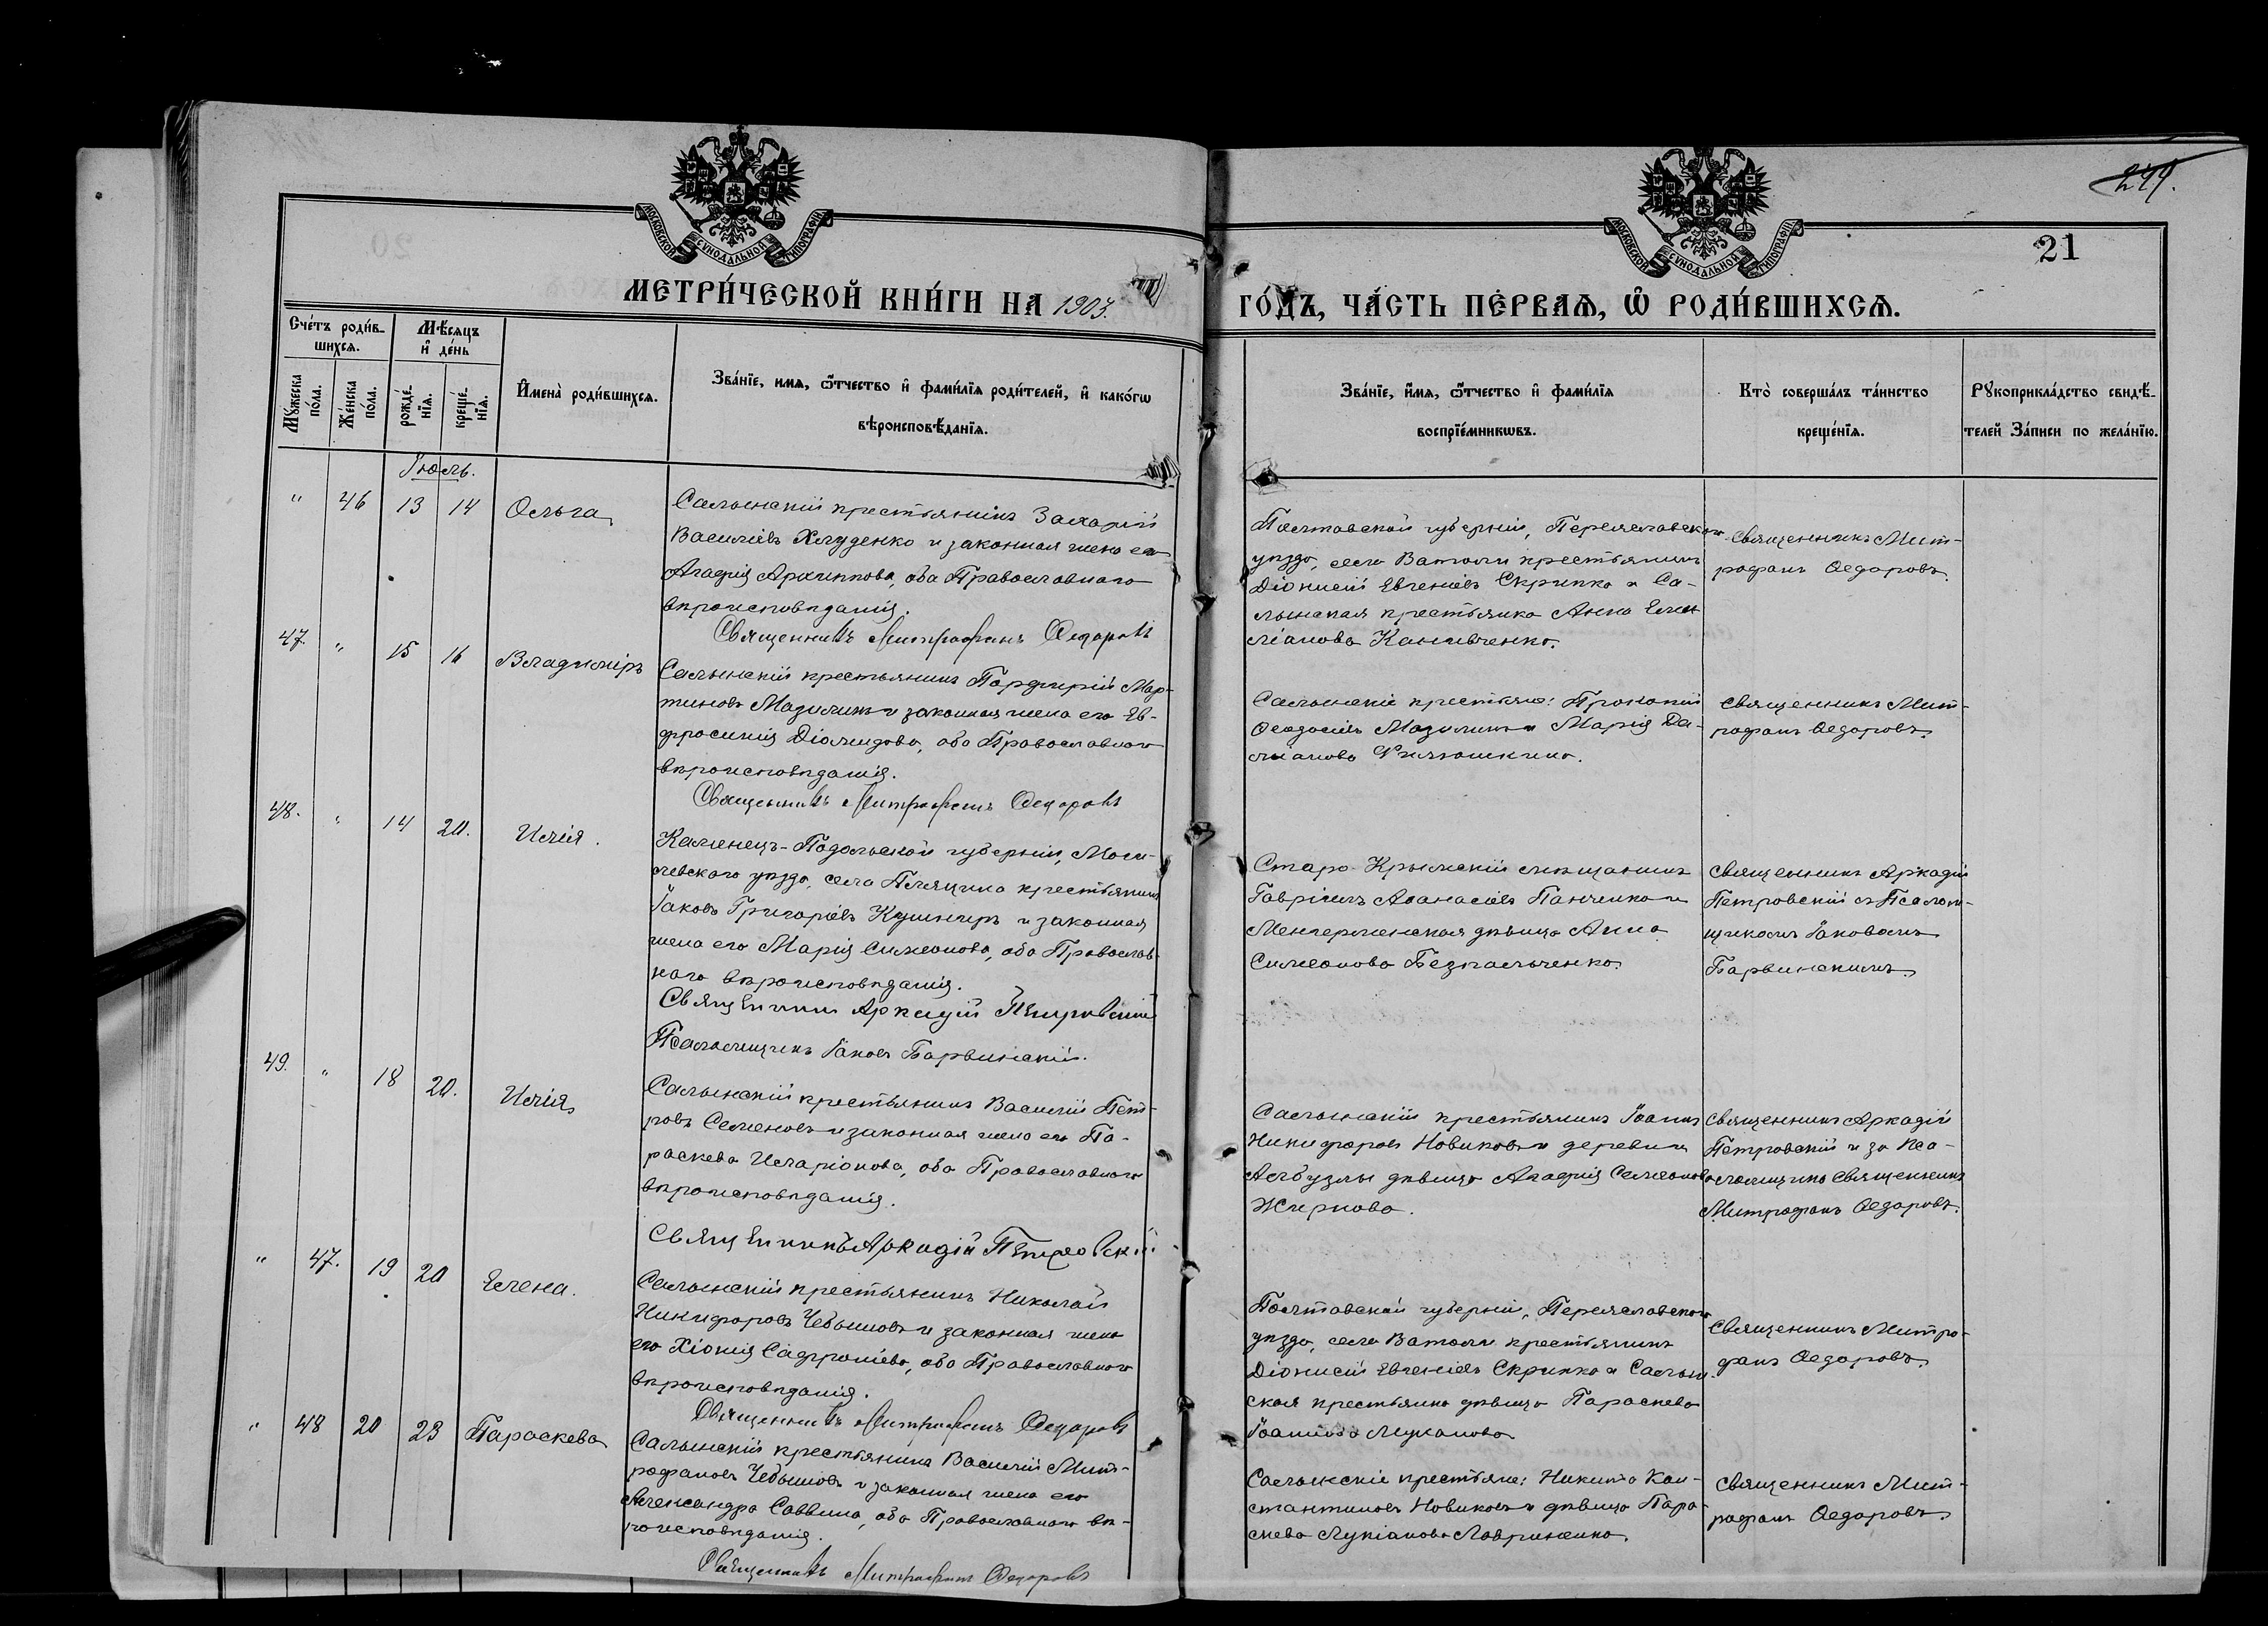 МОСКОВСКОЙ СУНОДАЛЬНОЙ ТИПОГРАФІИ
МОСКОВСКОЙ СУНОДАЛЬНОЙ ТИПОГРАФІИ
21
МЕТРИ́ЧЕСКОЙ КНИ́ГИ НА 1903. ГО́ДЪ, ЧА́СТЬ ПЕ́РВАѦ, Ѡ РОДИ́ВШИХСѦ.
Сче́тъ роди́в-
шихсѧ.
Му́жеска по́ла.
Же́нска по́ла.
Мѣ́сяцъ
и де́нь
рожде́-
нїѧ.
креще́-
нїѧ.
Имена̀ роди́вшихсѧ.
Зва́нїе, имѧ, ѻтчество и фами́лїѧ роди́телей, и како́гѡ
вѣроисповѣ́данїѧ.
Зва́нїе, и́мѧ, ѻтчество и фами́лїѧ
воспрїе́мникѡвъ.
Кто̀ соверша́лъ та́инство
креще́нїѧ.
Рукоприкла́дство свидѣ́-
телей За́писи по жела́нїю.
Іюль.
" 46 13 14 Ольга
Салынскій крестьянинъ Захарій
Василіевъ Хлуденко и законная жена его
Агафія Архиппова, оба Православнаго
вѣроисповѣданія.
Священникъ Митрофанъ Ѳедоровъ
Полтавской губерніи, Переяславскаго
уѣзда, села крестьянинъ
Діонисій Евгеніевъ Скрипка и Са-
лынская крестьянка Анна Еми-
ліанова Канивченко.
Священникъ Мит-
рофанъ Ѳедоровъ.
47. " 15 16 Владиміръ
Салынскій крестьянинъ Порфирій Мар-
тиновъ Мазилинъ и законная жена его Ев-
фросинія Діомидова, оба Православнаго
вѣроисповѣданія.
Священникъ Митрофанъ Ѳедоровъ
Салынскіе крестьяне: Прокопій
Ѳеодосіевъ Мазилинъ и Марія Да-
міанова Филюшкина.
Священникъ Мит-
рофанъ Ѳедоровъ.
48. " 14 20. Илія.
Каменецъ-Подольской губерніи, Моги-
левскаго уѣзда, села крестьянинъ
Іаковъ Григоріевъ Кушниръ и законная
жена его Марія Симеонова, оба Православ-
наго вѣроисповѣданія.
Священникъ Аркадій Петровскій
Псаломщикъ Іаковъ Барвинскій.
Старо-Крымскій мѣщанинъ
Гавріилъ Аѳанасіевъ Панченко и
дѣвица Анна
Симеонова Безпальченко.
Священникъ Аркадій
Петровскій съ Псалом-
щикомъ Іаковомъ
Барвинскимъ.
49. " 18 20. Илія
Салынскій крестьянинъ Василій Пет-
ровъ Семеновъ и законная жена его Па-
раскева Иларіонова, оба Православнаго
вѣроисповѣданія.
Священникъ Аркадій Петровскій
Салынскій крестьянинъ Іоаннъ
Никифоровъ Новиковъ и деревни
дѣвица Агафія Симеонова
Жиркова.
Священникъ Аркадій
Петровскій и за Пса-
ломщика Священникъ
Митрофанъ Ѳедоровъ.
" 47. 19 20 Елена.
Салынскій крестьянинъ Николай
Никифоровъ Чебышовъ и законная жена
его Хіонія Софроніева, оба Православнаго
вѣроисповѣданія.
Священникъ Митрофанъ Ѳедоровъ
Полтавской губерніи, Переяславскаго
уѣзда, села крестьянинъ
Діонисій Евгеніевъ Скрипка и Салын-
ская крестьянка дѣвица Параскева
Іоаннова Луканова
Священникъ Митро-
фанъ Ѳедоровъ.
" 48 20 23 Параскева
Салынскій крестьянинъ Василій Мит-
рофановъ Чебышовъ и законная жена его
Александра Саввина, оба Православнаго вѣ-
роисповѣданія.
Священникъ Митрофанъ Ѳедоровъ
Салынскіе крестьяне: Никита Кон-
стантиновъ Новиковъ и дѣвица Пара-
скева Лукіанова Лавриненко.
Священникъ Мит-
рофанъ Ѳедоровъ.